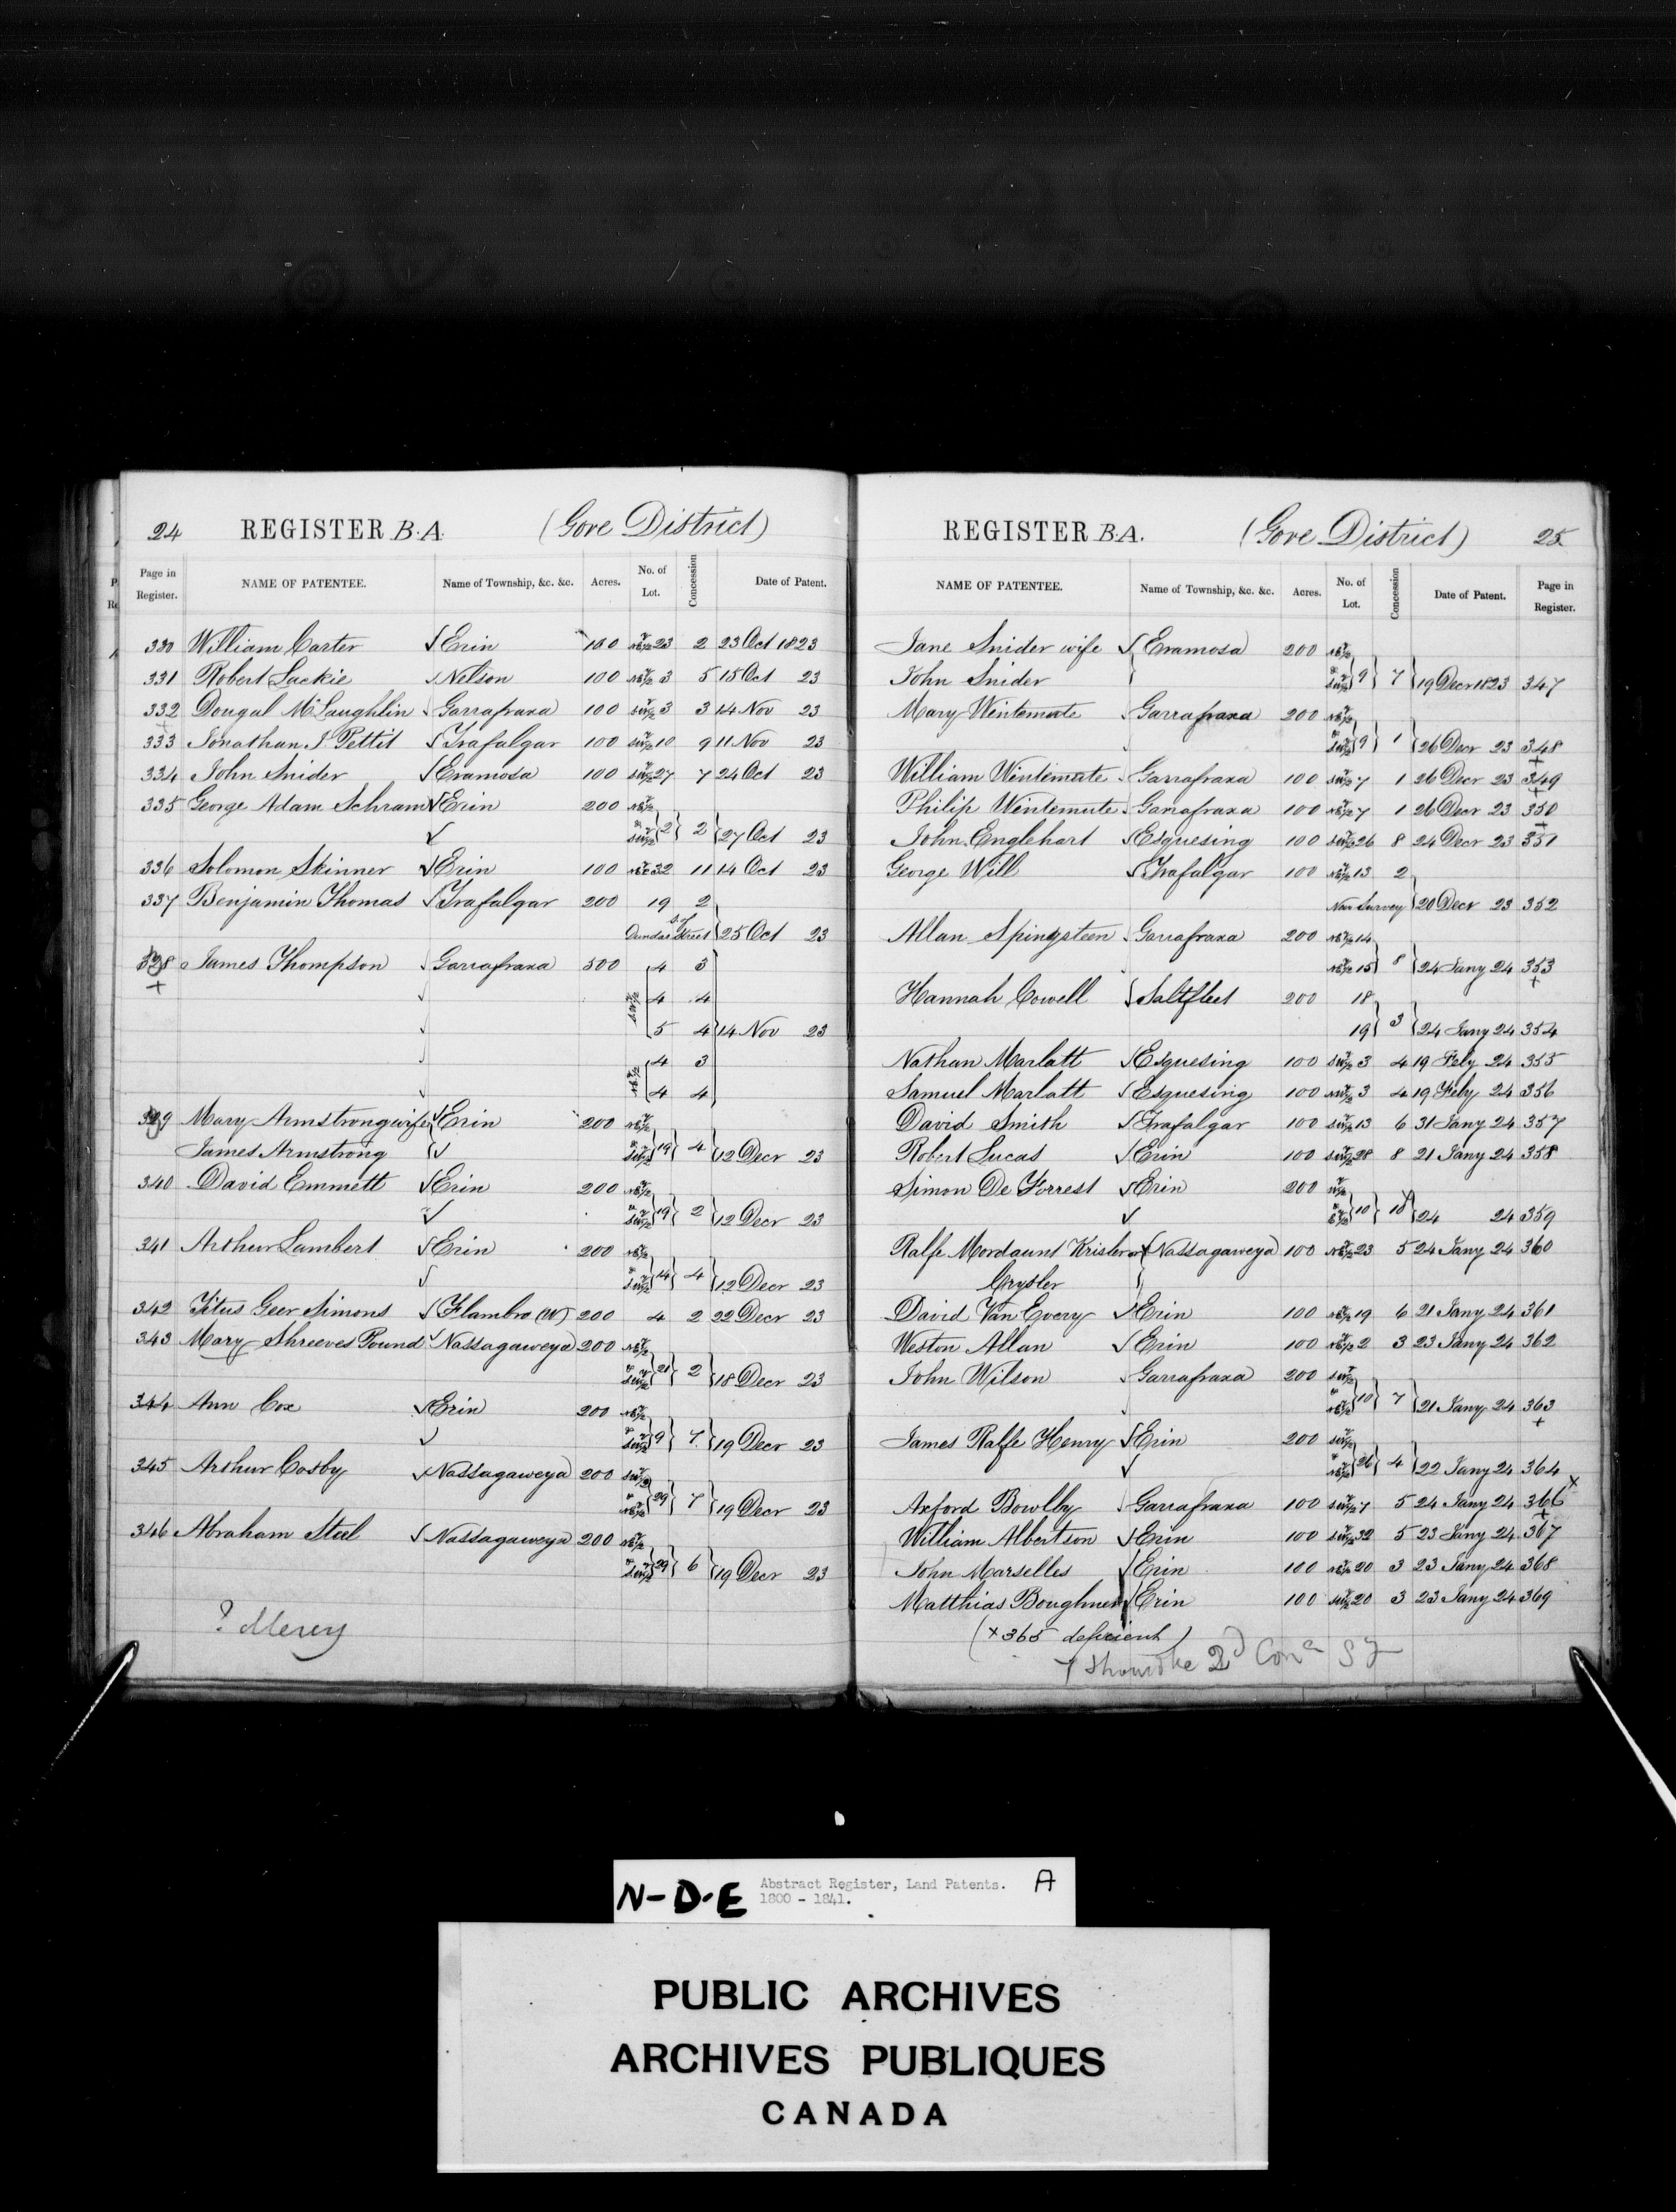 24 REGISTER B.A. (Gore District)
Page in Register. NAME OF PATENTEE. Name of Township, &c. &c. Acres. No. of Lot. Concession Date of Patent.
330 William Carter Erin 100 NE½ 23 2 23 Oct 1823
331 Robert Lackie Nelson 100 NE½ 3 5 15 Oct 23
332 Dougal McLaughlin Garrafraxa 100 SW½ 3 3 14 Nov 23
333 Jonathan J. Pettit Trafalgar 100 SW½ 10 9 11 Nov 23
334 John Snider Eramosa 100 SW½ 27 7 24 Oct 23
335 George Adam Schram Erin 200 NE½
& SW½ 2 2 27 Oct 23
336 Solomon Skinner Erin 100 NE½ 32 11 14 Oct 23
337 Benjamin Thomas Trafalgar 200 19 2
Dundas Street 25 Oct 23
338 James Thompson Garrafraxa 500 4 3
SW½ 4 4
5 4 14 Nov 23
4 3
NE½ 4 4
339 Mary Armstrong wife Erin 200 NE½
James Armstrong & SW½ 19 4 12 Decr 23
340 David Emmett Erin 200 NE½
& SW½ 19 2 12 Decr 23
341 Arthur Lambert Erin 200 NE½
& SW½ 14 4 12 Decr 23
342 Titus Geer Simons Flambro (W) 200 4 2 22 Decr 23
343 Mary Shreeves Pound Nassagaweya 200 NE½
& SW½ 21 2 18 Decr 23
344 Ann Cox Erin 200 NE½
& SW½ 9 7 19 Decr 23
345 Arthur Cosby Nassagaweya 200 SW½
& NE½ 29 7 19 Decr 23
346 Abraham Steel Nassagaweya 200 NE½
& SW½ 29 6 19 Decr 23
? Mercy
REGISTER B.A. (Gore District) 25
NAME OF PATENTEE. Name of Township, &c. &c. Acres. No. of Lot. Concession Date of Patent. Page in Register.
Jane Snider wife Eramosa 200 NE½
John Snider & SW½ 9 7 19 Decr 1823 347
Mary Wintemute Garrafraxa 200 NE½
& SW½ 9 1 26 Decr 23 348
William Wintemute Garrafraxa 100 SW½ 7 1 26 Decr 23 349
Philip Wintemute Garrafraxa 100 NE½ 7 1 26 Decr 23 350
John Englehart Esquesing 100 SW½ 26 8 24 Decr 23 351
George Will Trafalgar 100 NE½ 13 2
New Survey 20 Decr 23 352
Allan Springsteen Garrafraxa 200 NE½ 14
NE½ 15 8 24 Jany 24 353
Hannah Cowell Saltfleet 200 18
19 3 24 Jany 24 354
Nathan Marlatt Esquesing 100 SW½ 3 4 19 Feby 24 355
Samuel Marlatt Esquesing 100 NE½ 3 4 19 Feby 24 356
David Smith Trafalgar 100 SW½ 13 6 31 Jany 24 357
Robert Lucas Erin 100 SW½ 28 8 21 Jany 24 358
Simon De Forrest Erin 200 W½
& E½ 10 10 24 24 359
Ralfe Mordaunt Krisler or Nassagaweya 100 NE½ 23 5 24 Jany 24 360
Crysler
David Van Every Erin 100 NE½ 19 6 21 Jany 24 361
Weston Allan Erin 100 NE½ 2 3 23 Jany 24 362
John Wilson Garrafraxa 200 SW½
& NE½ 10 7 21 Jany 24 363
James Ralfe Henry Erin 200 SW½
& NE½ 26 4 22 Jany 24 364
Axford Bowlby Garrafraxa 100 SW½ 7 5 24 Jany 24 366 x
William Albertson Erin 100 SW½ 32 5 23 Jany 24 367
John Marselles Erin 100 NE½ 20 3 23 Jany 24 368
Matthias Boughner Erin 100 SW½ 20 3 23 Jany 24 369
(x 365 deficient)
should be 2d Con
N-D-E Abstract Register, Land Patents. A
1800 - 1841.
PUBLIC ARCHIVES
ARCHIVES PUBLIQUES
CANADA